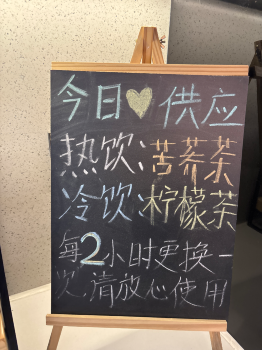 今日♥供应
热饮:苦荞茶
冷饮:柠檬茶
每2小时更换一
次,请放心使用